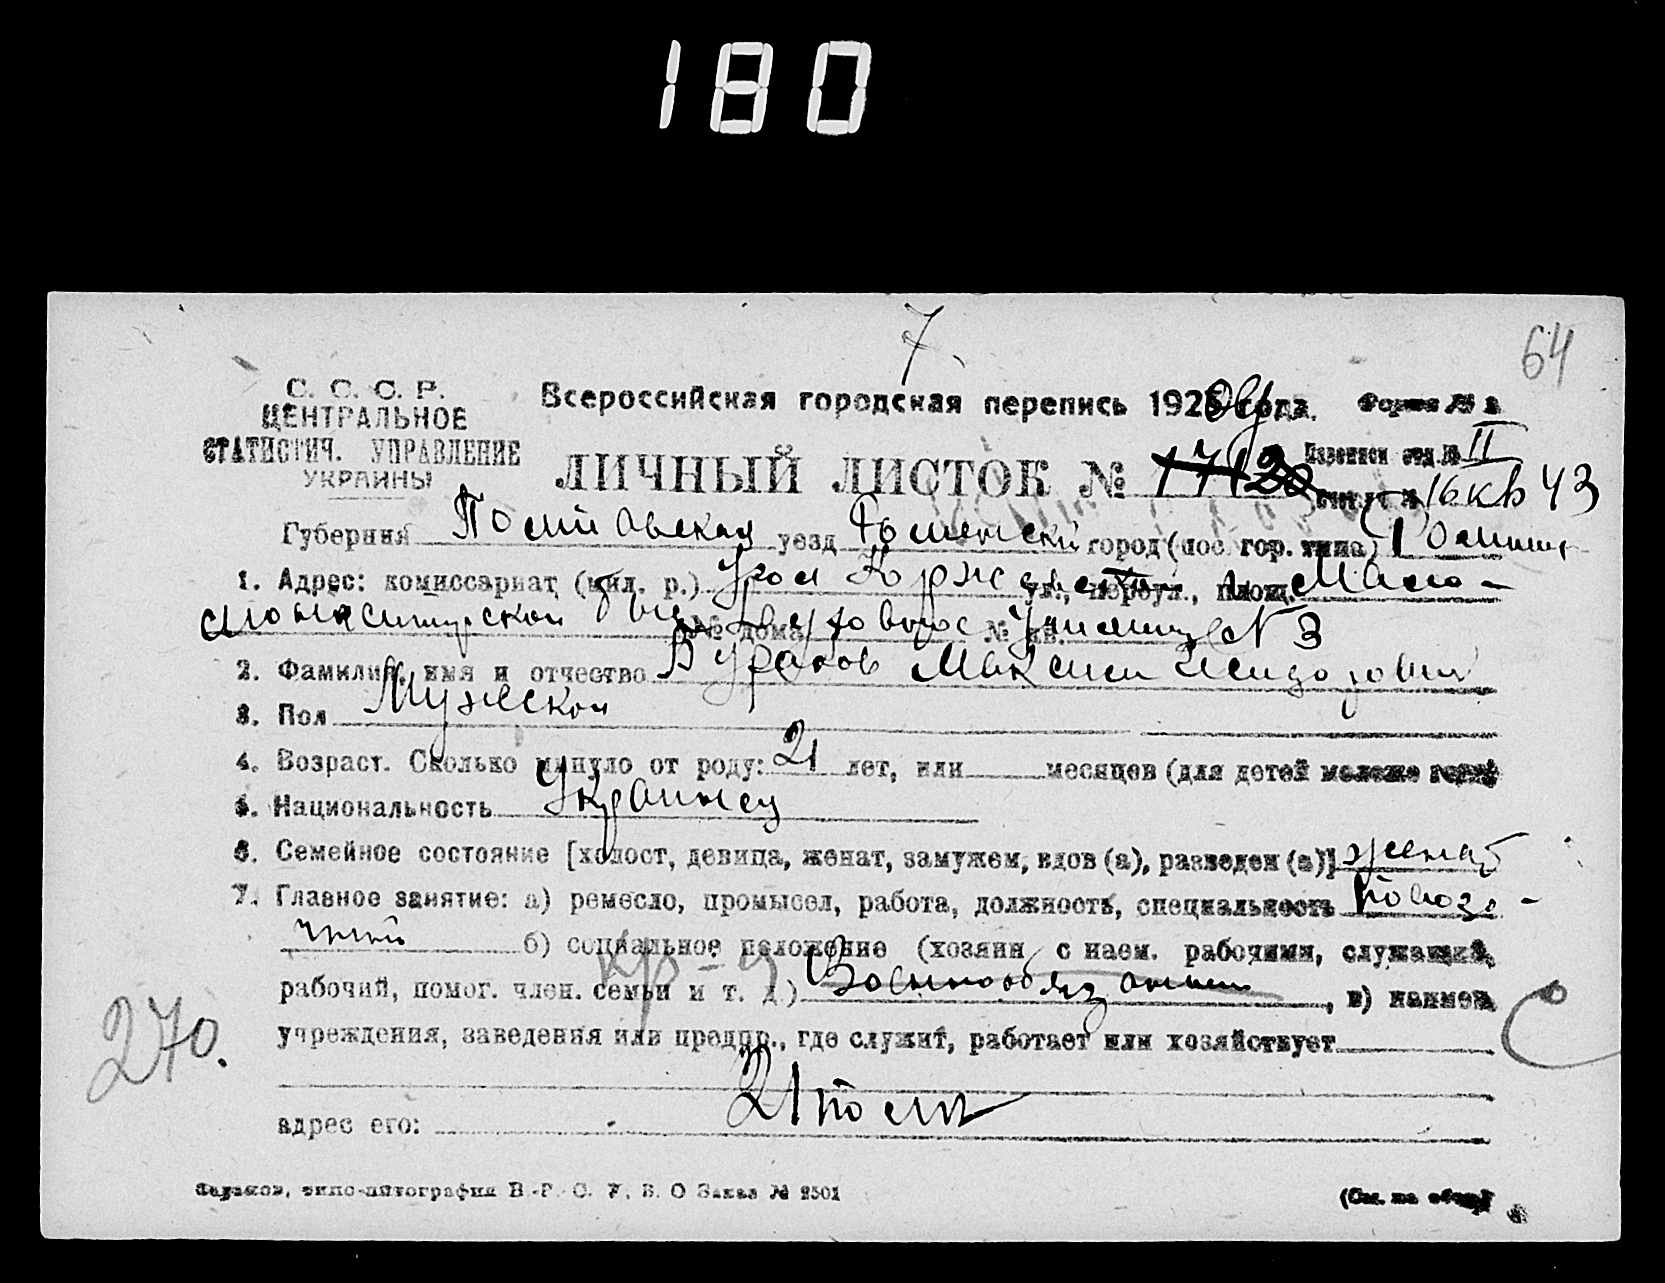 180
7
64
С. С. С. Р.
ЦЕНТРАЛЬНОЕ
СТАТИСТИЧ. УПРАВЛЕНИЕ
УКРАИНЫ
Всероссийская городская перепись 192 года. Форма №
ЛИЧНЫЙ ЛИСТОК № 1712 Переписн отд. № II
16 кв 43
Губерния Полтавская уезд Роменский город (пос. гор. типа) Ромны
1. Адрес: комиссариат, (мил. р.) Угол ул., переул., площ. Мало-
монастырской № дома Духовное № кв. Училище № 3
2. Фамилия, имя и отчество Бураков Максим Исидорович
3. Пол Мужской
4. Возраст. Сколько минуло от роду: 21 лет, или месяцев (для детей моложе года)
5. Национальность Украинец
6. Семейное состояние [холост, девица, женат, замужем, вдов (а), разведен (а)] женат
7. Главное занятие: а) ремесло, промысел, работа, должность, специальность повозо-
чный б) социальное положение (хозяин с наем. рабочими, служащий,
кр-н
рабочий, помог. член. семьи и т. д.) Военнообязанный, в) наимен.
270.
учреждения, заведения или предпр., где служит, работает или хозяйствует
21 полк
адрес его:
Харьков, типо-литография В. Р. С. У. В. О Заказ № 2501
(См. на обор.)